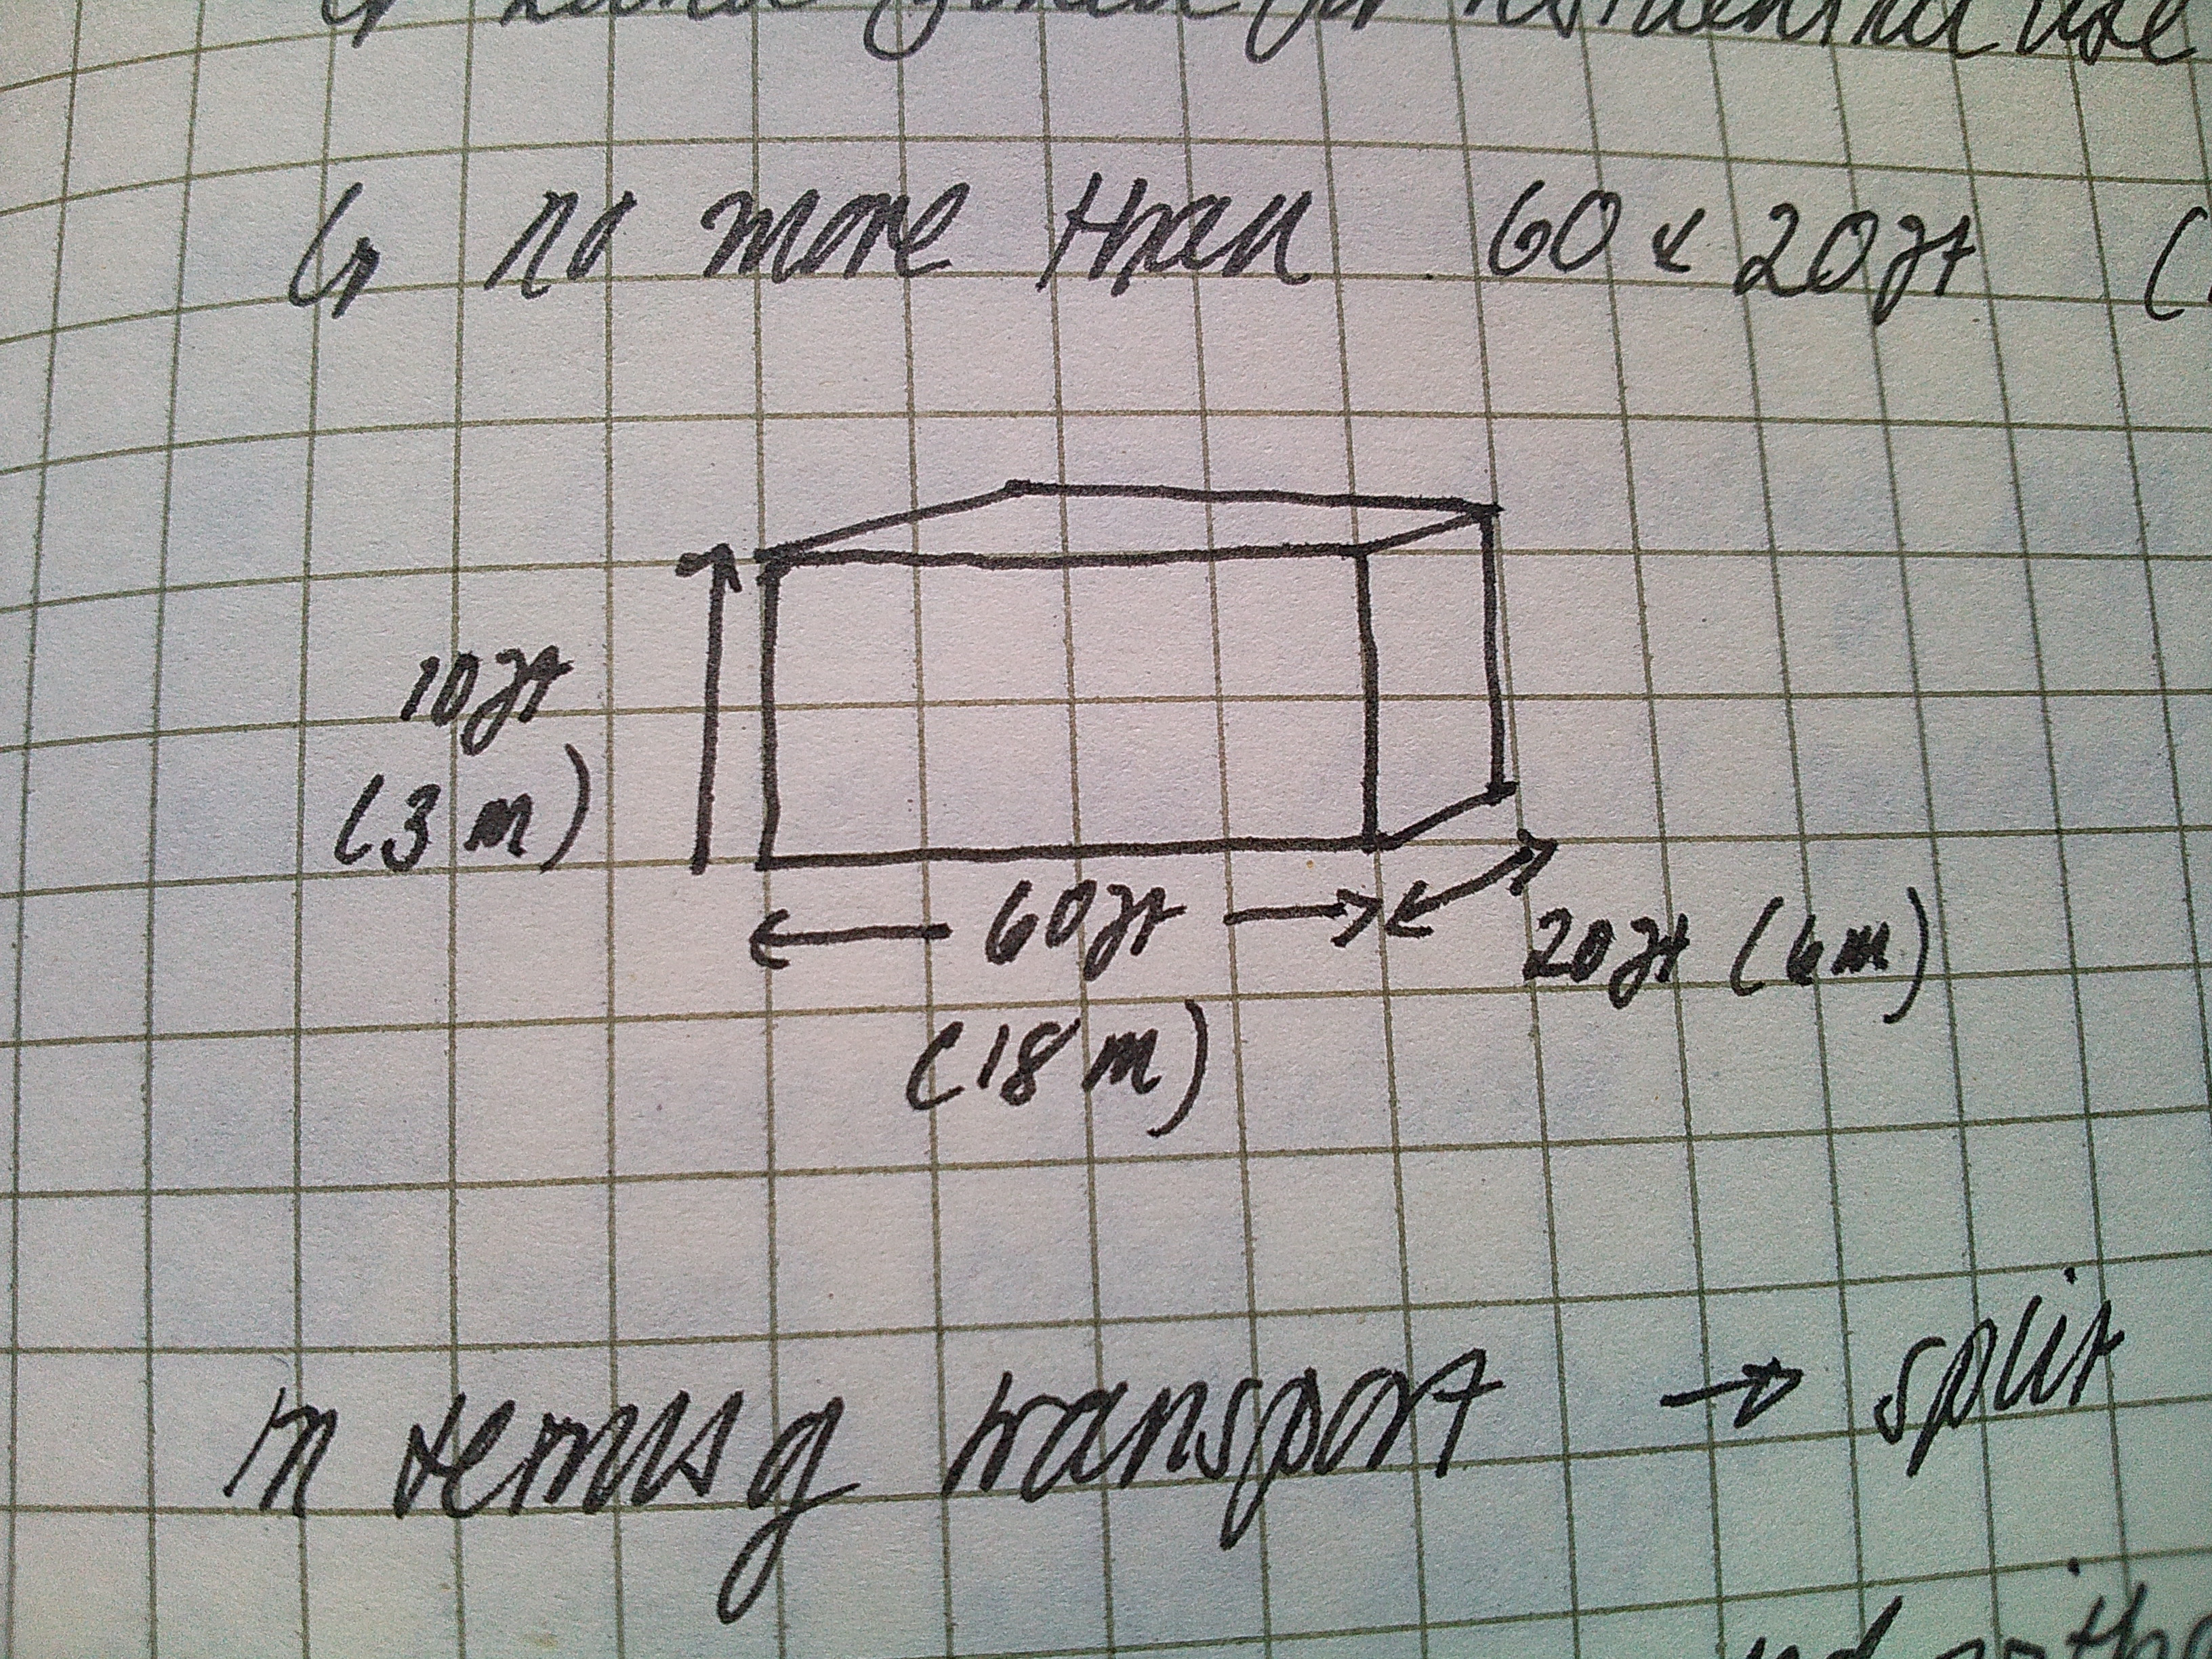 use
↳ no more than 60 x 20ft (
10ft
(3 m)
60ft
20ft (6m)
(18 m)
in terms of transport → split